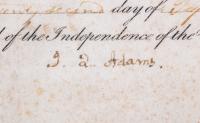 day of
of the Independence of the
J. Q. Adams